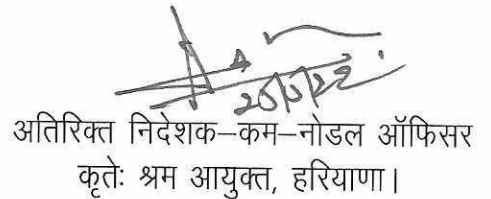 अतिरिक्त निदेशक–कम–नोडल ऑफिसर
कृतेः श्रम आयुक्त, हरियाणा।